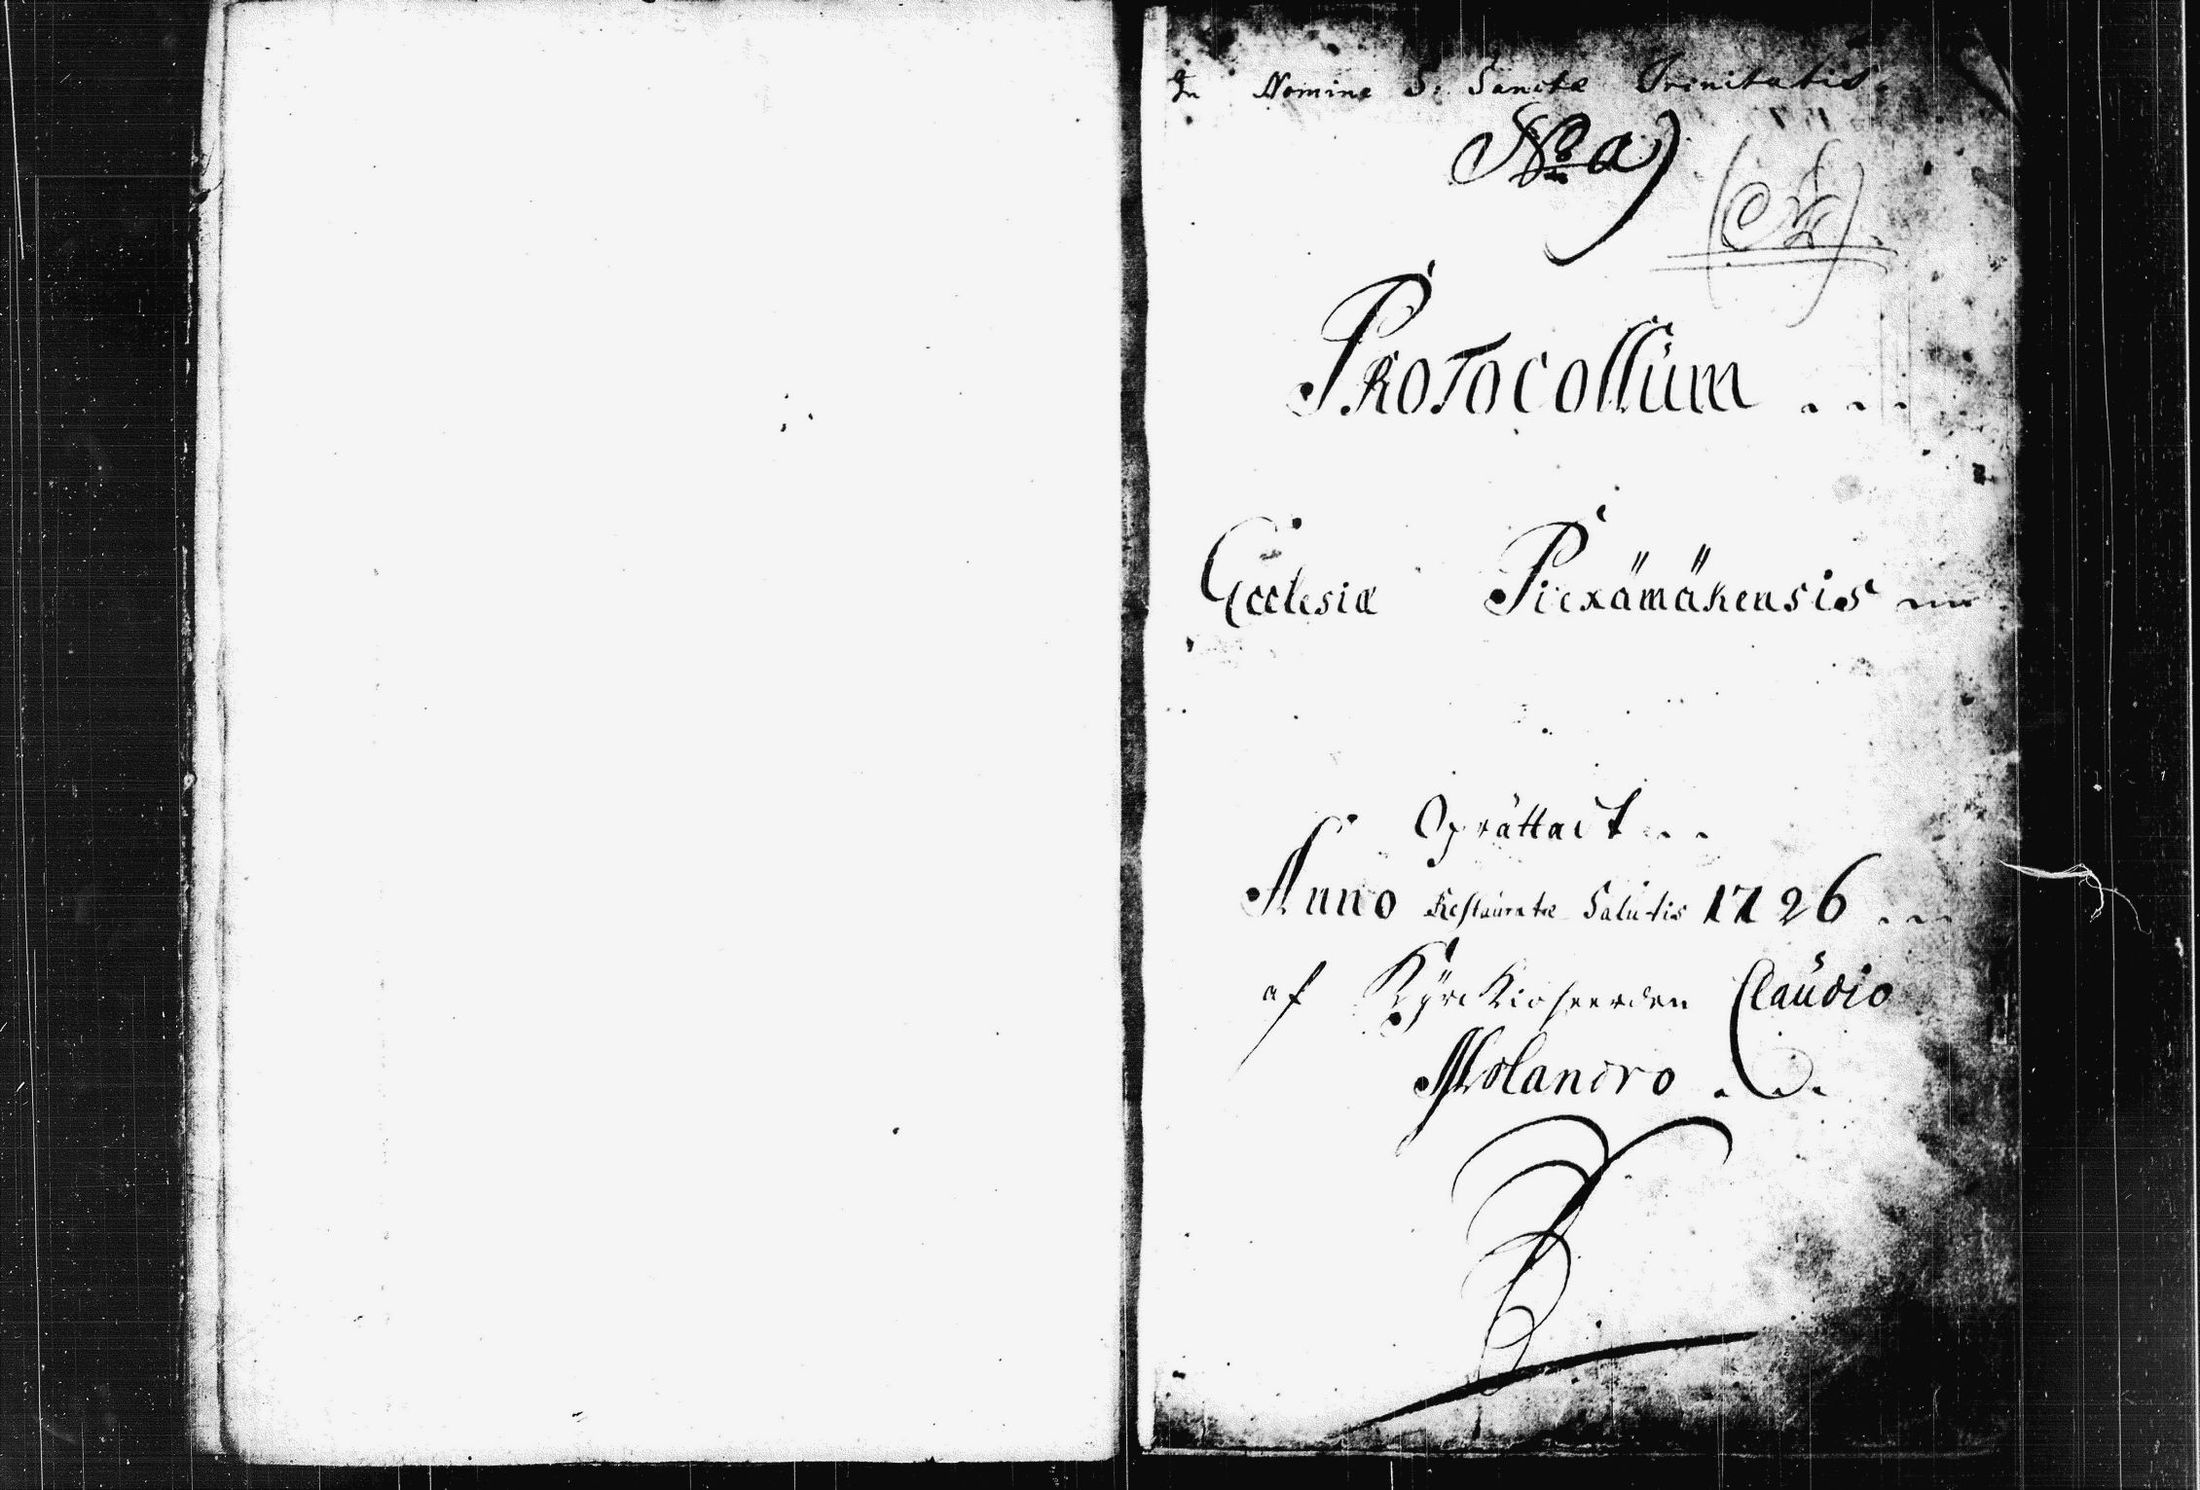 In Nomine S: Sanctæ Trinitatis.
No a)
Protocollum...
Ecclesiæ Piexämäkensis
Oprättadt...
Anno Restauratæ Salutis 1726...
af Kyrckioheerden Claudio
Molandro...